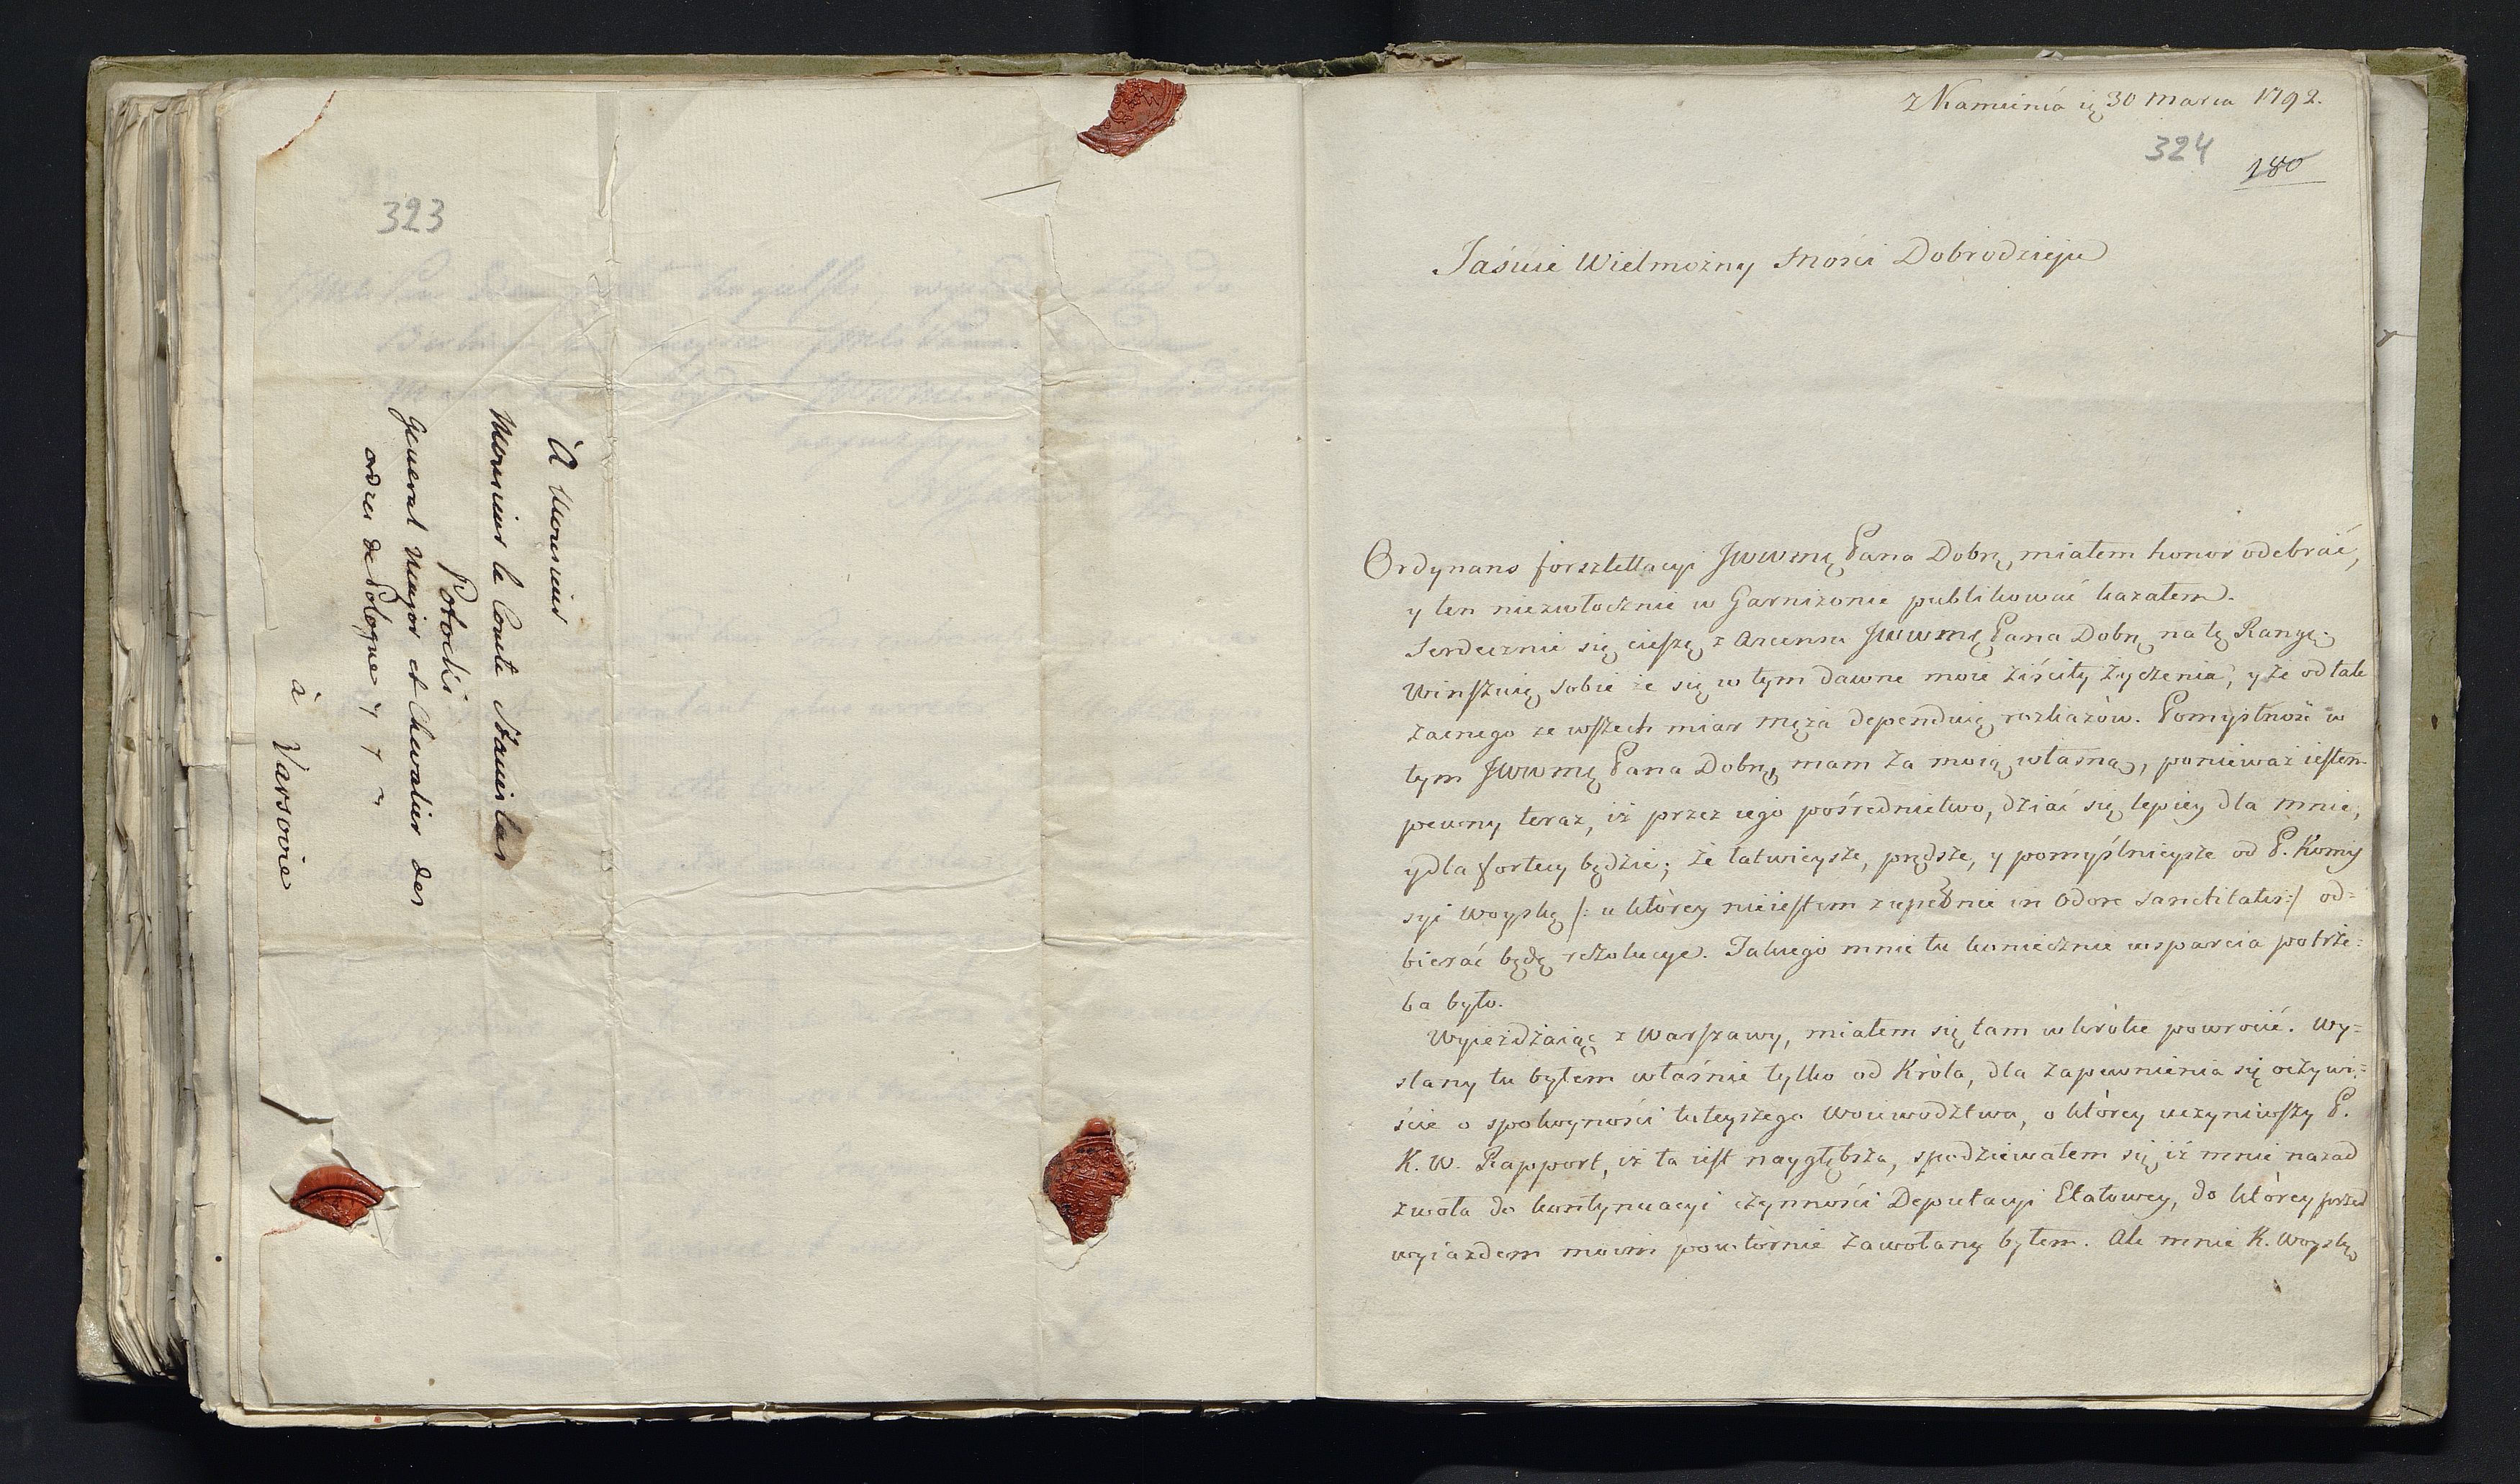 323
À Monsieur
Monsieur le Comte Stanislas
Potocki
General Major et Chevalier des
ordres de Pologne
à Varsovie
z Kamieńca 30 Marca 1792.
324
180
Jaśnie Wielmożny Mości Dobrodzieju
Ordynans forsztellacyi JWWMę Pana Dobrę miałem honor odebrać,
y ten niezwłocznie w Garnizonie publikować kazałem.
Serdecznie się cieszę z Ascensu JWWMę Pana Dobrę na tę Rangę.
Winszuię sobie że się w tym dawne moie ziściły życzenia, y że od tak
zacnego ze wszech miar męża dependuię rozkazów. Pomyślność w
tym JWWMę Pana Dobrę, mam za moią własną, ponieważ iestem
pewny teraz, iż przez iego pośrednictwo, dziać się lepiey dla mnie,
y dla fortecy będzie; że łatwieysze, prędsze, y pomyślnieysze od P. Komis
syi Woyskę /: u którey nie iestem zupełnie in Odore Sanctitatis :/ od=
bierać będę rezolucye. Takiego mnie tu koniecznie wsparcia potrze=
ba było.
Wyieżdżaiąc z Warszawy, miałem się tam wkrótce powrócić. Wy=
słany tu byłem właśnie tylko od Króla, dla zapewnienia się oczywi=
ście o spokoyności tuteyszego Woiewodztwa, o którey uczyniwszy P.
K. W. Rapport, iż ta iest naygłębsza, spodziewałem się iż mnie nazad
zwoła do kontynuacyi czynności Deputacyi Etatowey, do którey przed
wyiazdem moim powtórnie zawołany byłem. Ale mnie K. Woyskę